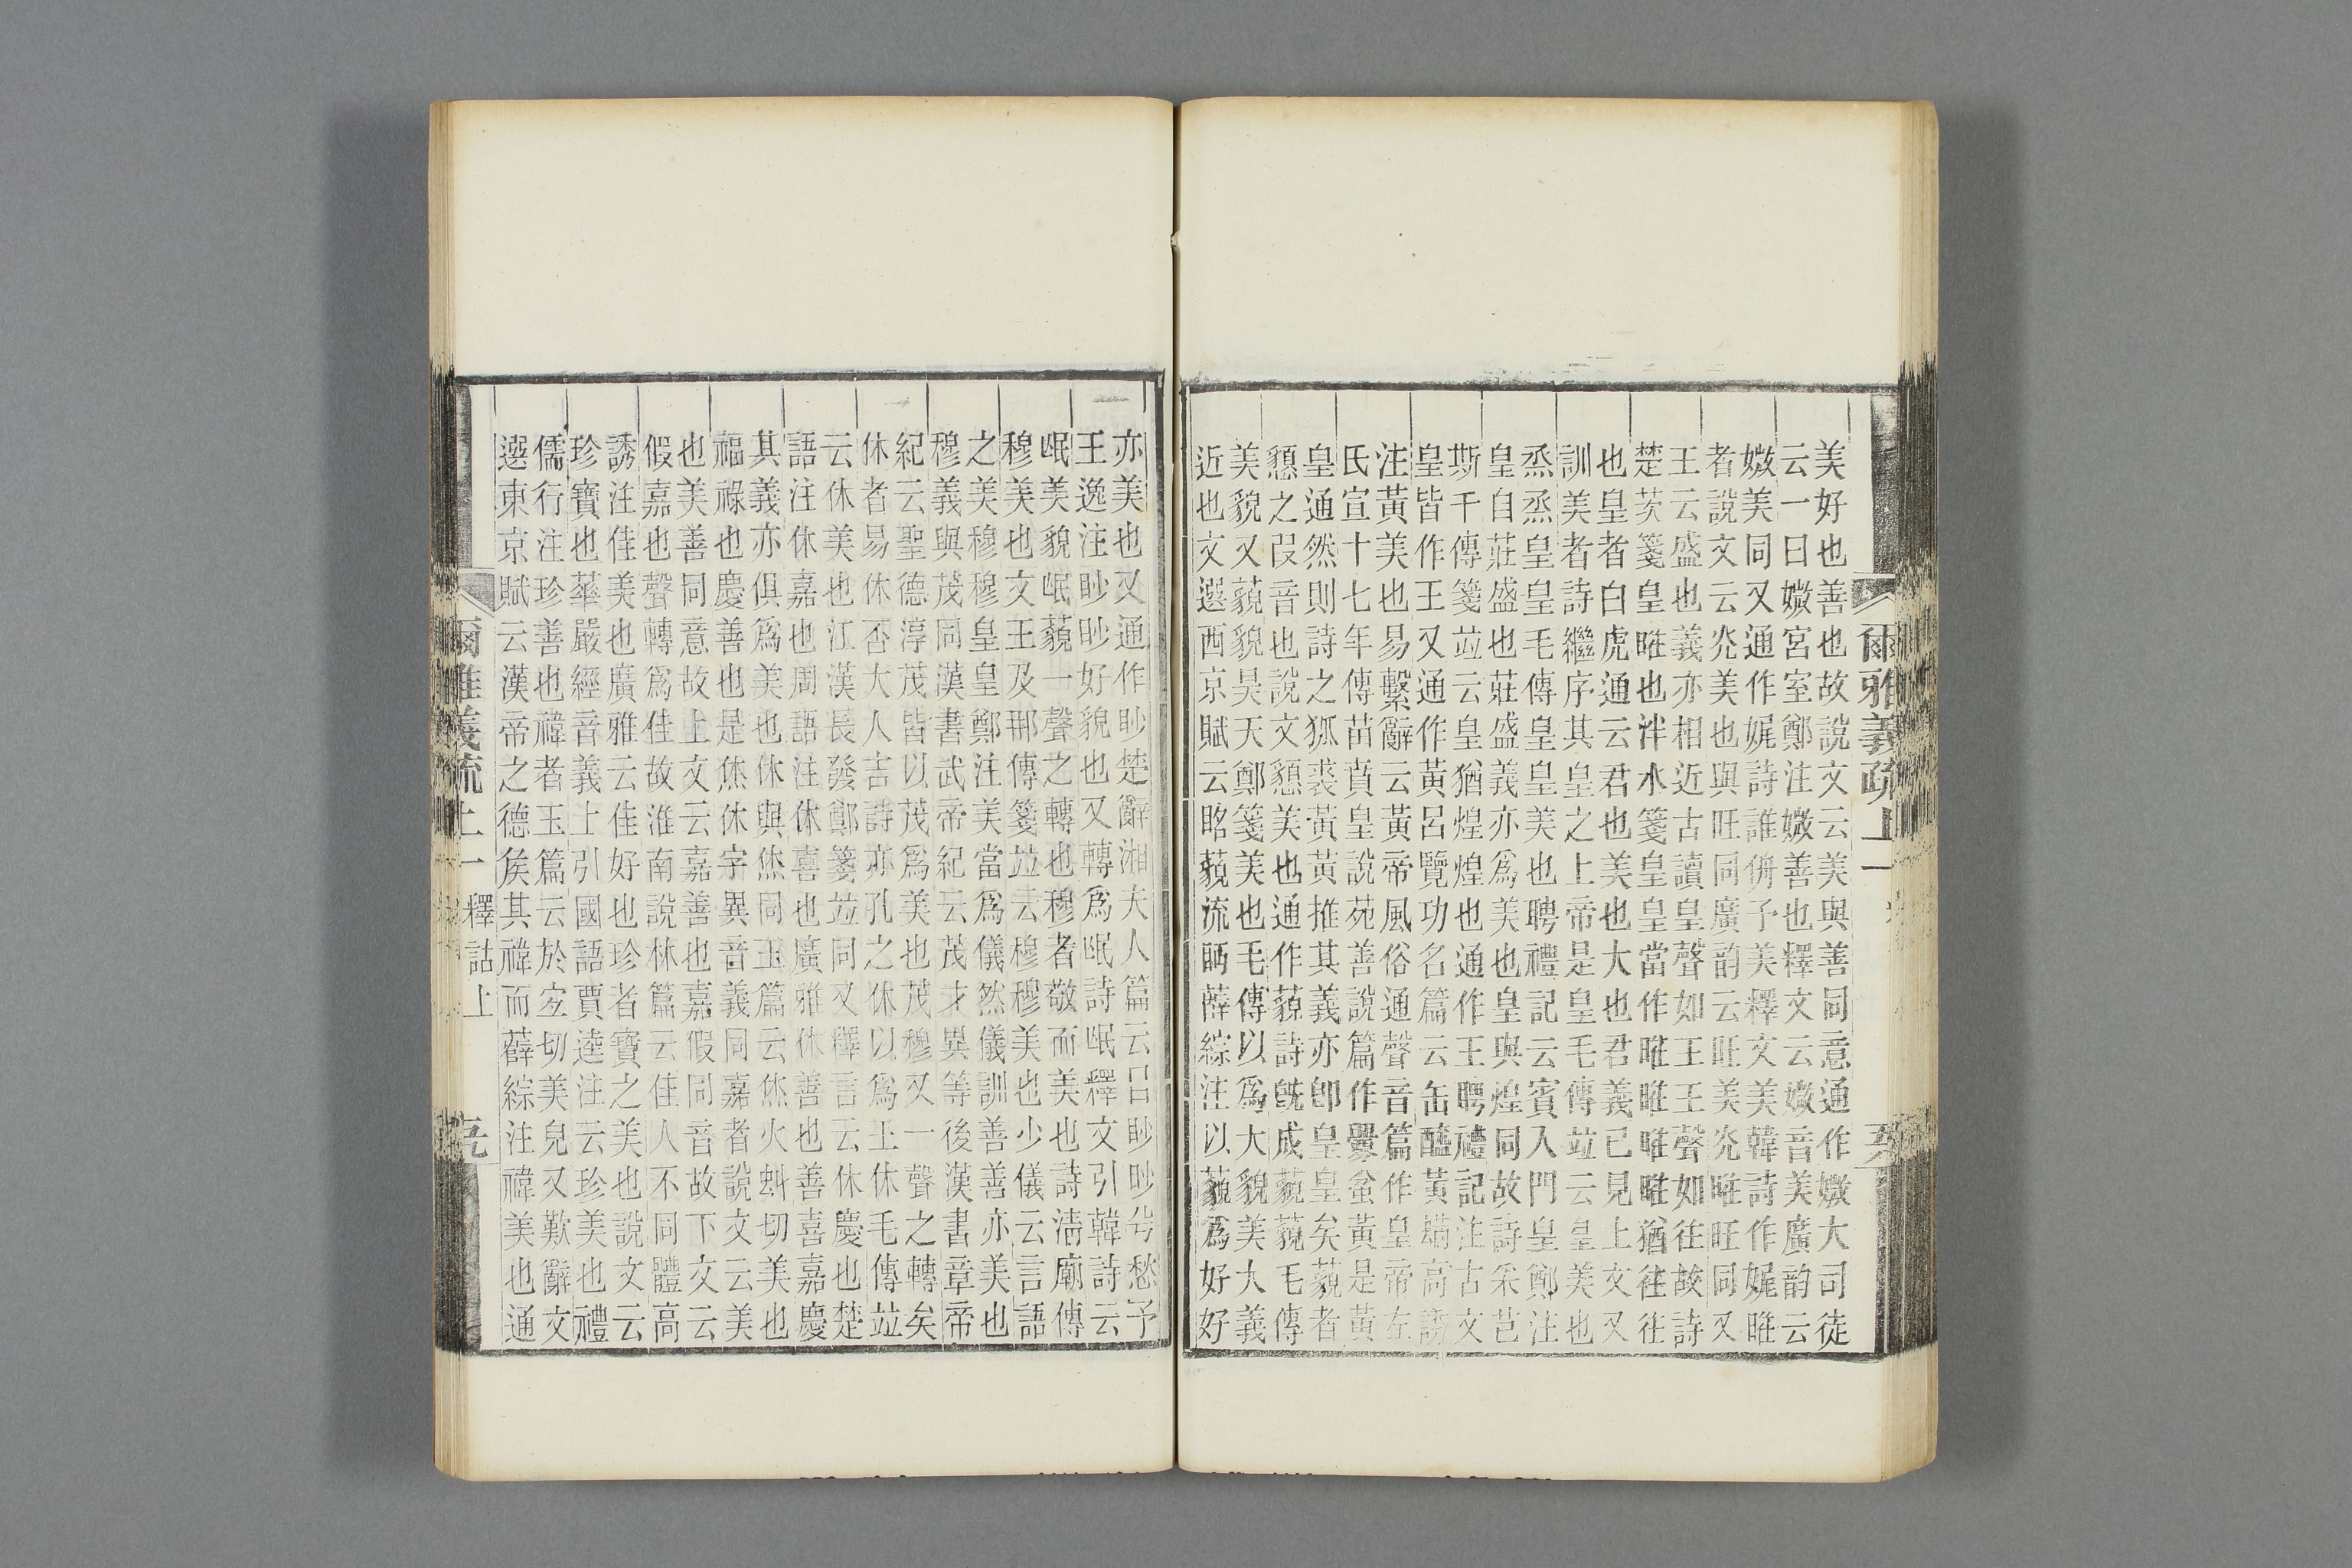 爾雅義疏上一
美好也善也故說文云美與善同意通作媺大司徒
云一曰媺宮室鄭注媺善也釋文云媺音美廣韵云
媺美同又通作娓詩誰侜予美釋文美韓詩作娓暀
者說文云㒸美也與旺同廣韵云旺美㒸暀旺同又
王云盛也義亦相近古讀皇聲如王王聲如往故詩
楚茨箋皇暀也泮水箋皇皇當作暀暀暀暀猶往往
也皇者白虎通云君也美也大也君義已見上文又
訓美者詩繼序其皇之上帝是皇毛傳竝云皇美也
烝烝皇皇毛傳皇皇美也聘禮記云賓入門皇鄭注
皇自莊盛也莊盛義亦爲美也皇與煌同故詩采芑
斯干傳箋竝云皇猶煌煌也通作王聘禮記注古文
皇皆作王又通作黃呂覽功名篇云缶醯黃蜹高誘
注黃美也易繫辭云黃帝風俗通聲音篇作皇帝左
氏宣十七年傳苗賁皇說苑善說篇作釁蚠黃是黃
皇通然則詩之狐裘黃黃推其義亦卽皇皇矣藐者
懇之叚音也說文懇美也通作藐詩旣成藐藐毛傳
美貌又藐貌昊天鄭箋美也毛傳以爲大貌美大義
近也文選西京賦云眳藐流眄薛綜注以藐爲好好
亦美也又通作眇楚辭湘夫人篇云目眇眇兮愁予
王逸注眇眇好貌也又轉爲㟭詩㟭釋文引韓詩云
㟭美貌㟭藐一聲之轉也穆者敬而美也詩淸廟傳
穆美也文王及那傳箋竝云穆穆美也少儀云言語
之美穆穆皇皇鄭注美當爲儀然儀訓善善亦美也
穆義與茂同漢書武帝紀云茂才異等後漢書章帝
紀云聖德淳茂皆以茂爲美也茂穆又一聲之轉矣
休者易休否大人吉詩亦孔之休以爲王休毛傳竝
云休美也江漢長發鄭箋竝同又釋言云休慶也楚
語注休嘉也周語注休喜也廣雅休善也善喜嘉慶
其義亦俱爲美也休與烋同玉篇云烋火虯切美也
福祿也慶善也是烋休字異音義同嘉者說文云美
也美善同意故上文云嘉善也嘉假同音故下文云
假嘉也聲轉爲佳故淮南說林篇云佳人不同體高
誘注佳美也廣雅云佳好也珍者寶之美也說文云
珍寶也華嚴經音義上引國語賈逵注云珍美也禮
儒行注珍善也禕者玉篇云於宜切美皃又歎辭文
選東京賦云漢帝之德矦其禕而薛綜注禕美也通
爾雅義疏上一
釋詁上